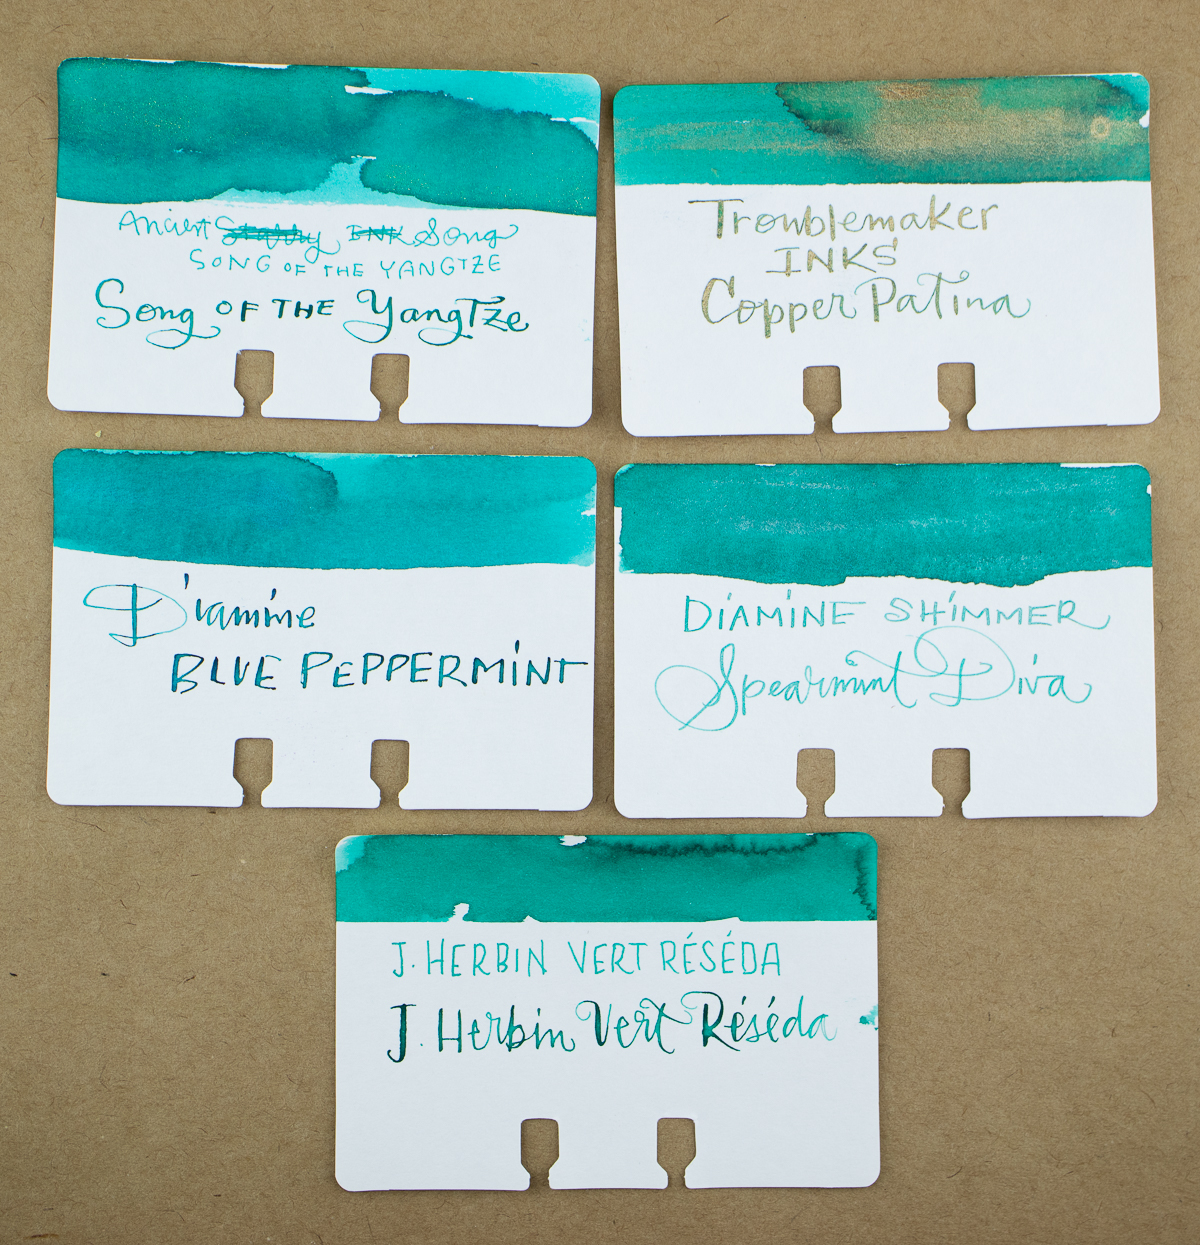 Ancient Studdy INK Song
SONG OF THE YANGTZE
Song OF THE YangTze
Troublemaker
INKS
Copper Patina
Diamine
BLUE PEPPERMINT
DIAMINE SHIMMER
Spearmint Diva
J. HERBIN VERT RÉSÉDA
J. Herbin Vert Réséda